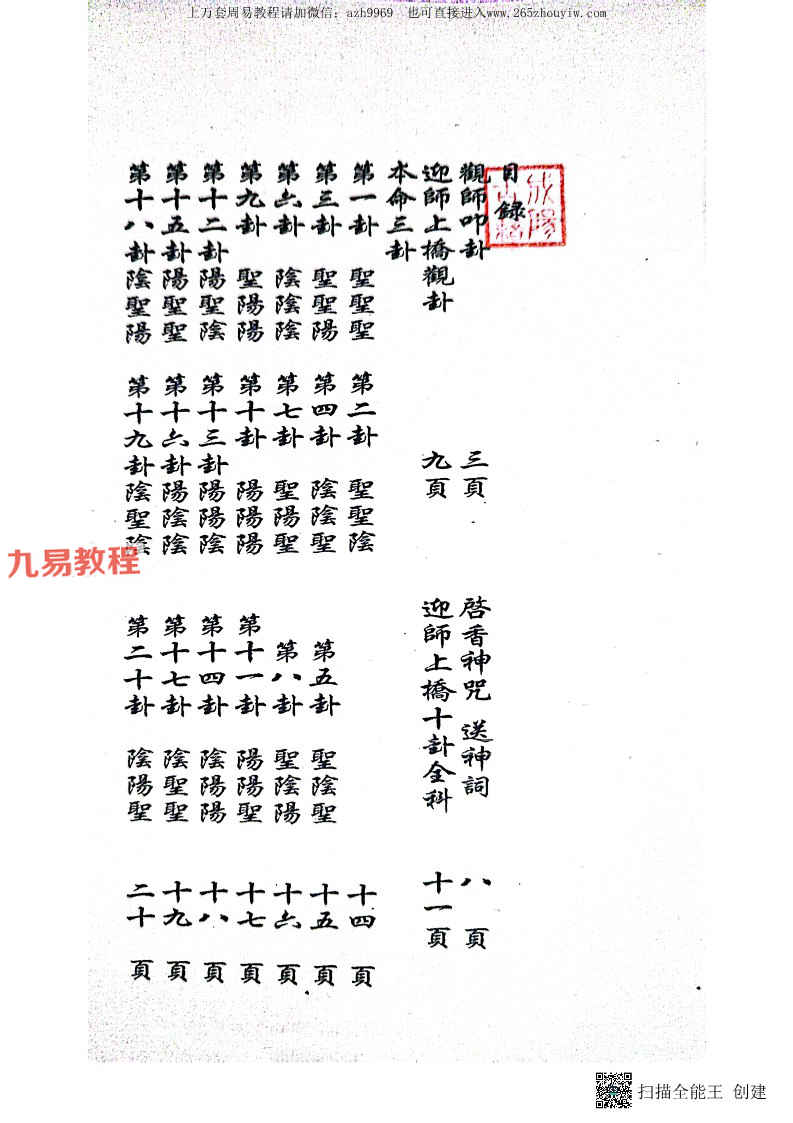 上万套周易教程请加微信：azh9969 也可直接进入www.265zhouyiw.com
目錄
觀師叩卦 三頁 啓香神咒 送神詞 八頁
迎師上橋觀卦 九頁 迎師上橋十卦全科 十一頁
本命三卦
第一卦 聖聖聖 第二卦 聖聖陰 十四頁
第三卦 聖聖陽 第四卦 陰陰聖 第五卦 聖陰聖 十五頁
第六卦 陰陰陰 第七卦 聖陽聖 第八卦 聖陰陽 十六頁
第九卦 聖陽陽 第十卦 陽陽陽 第十一卦 陽陽聖 十七頁
第十二卦 陽聖陰 第十三卦 陽陽陰 第十四卦 陰陽陽 十八頁
第十五卦 陽聖聖 第十六卦 陽陰陰 第十七卦 陰聖聖 十九頁
第十八卦 陰聖陽 第十九卦 陰聖陰 第二十卦 陰陽聖 二十頁
九易教程
扫描全能王 创建